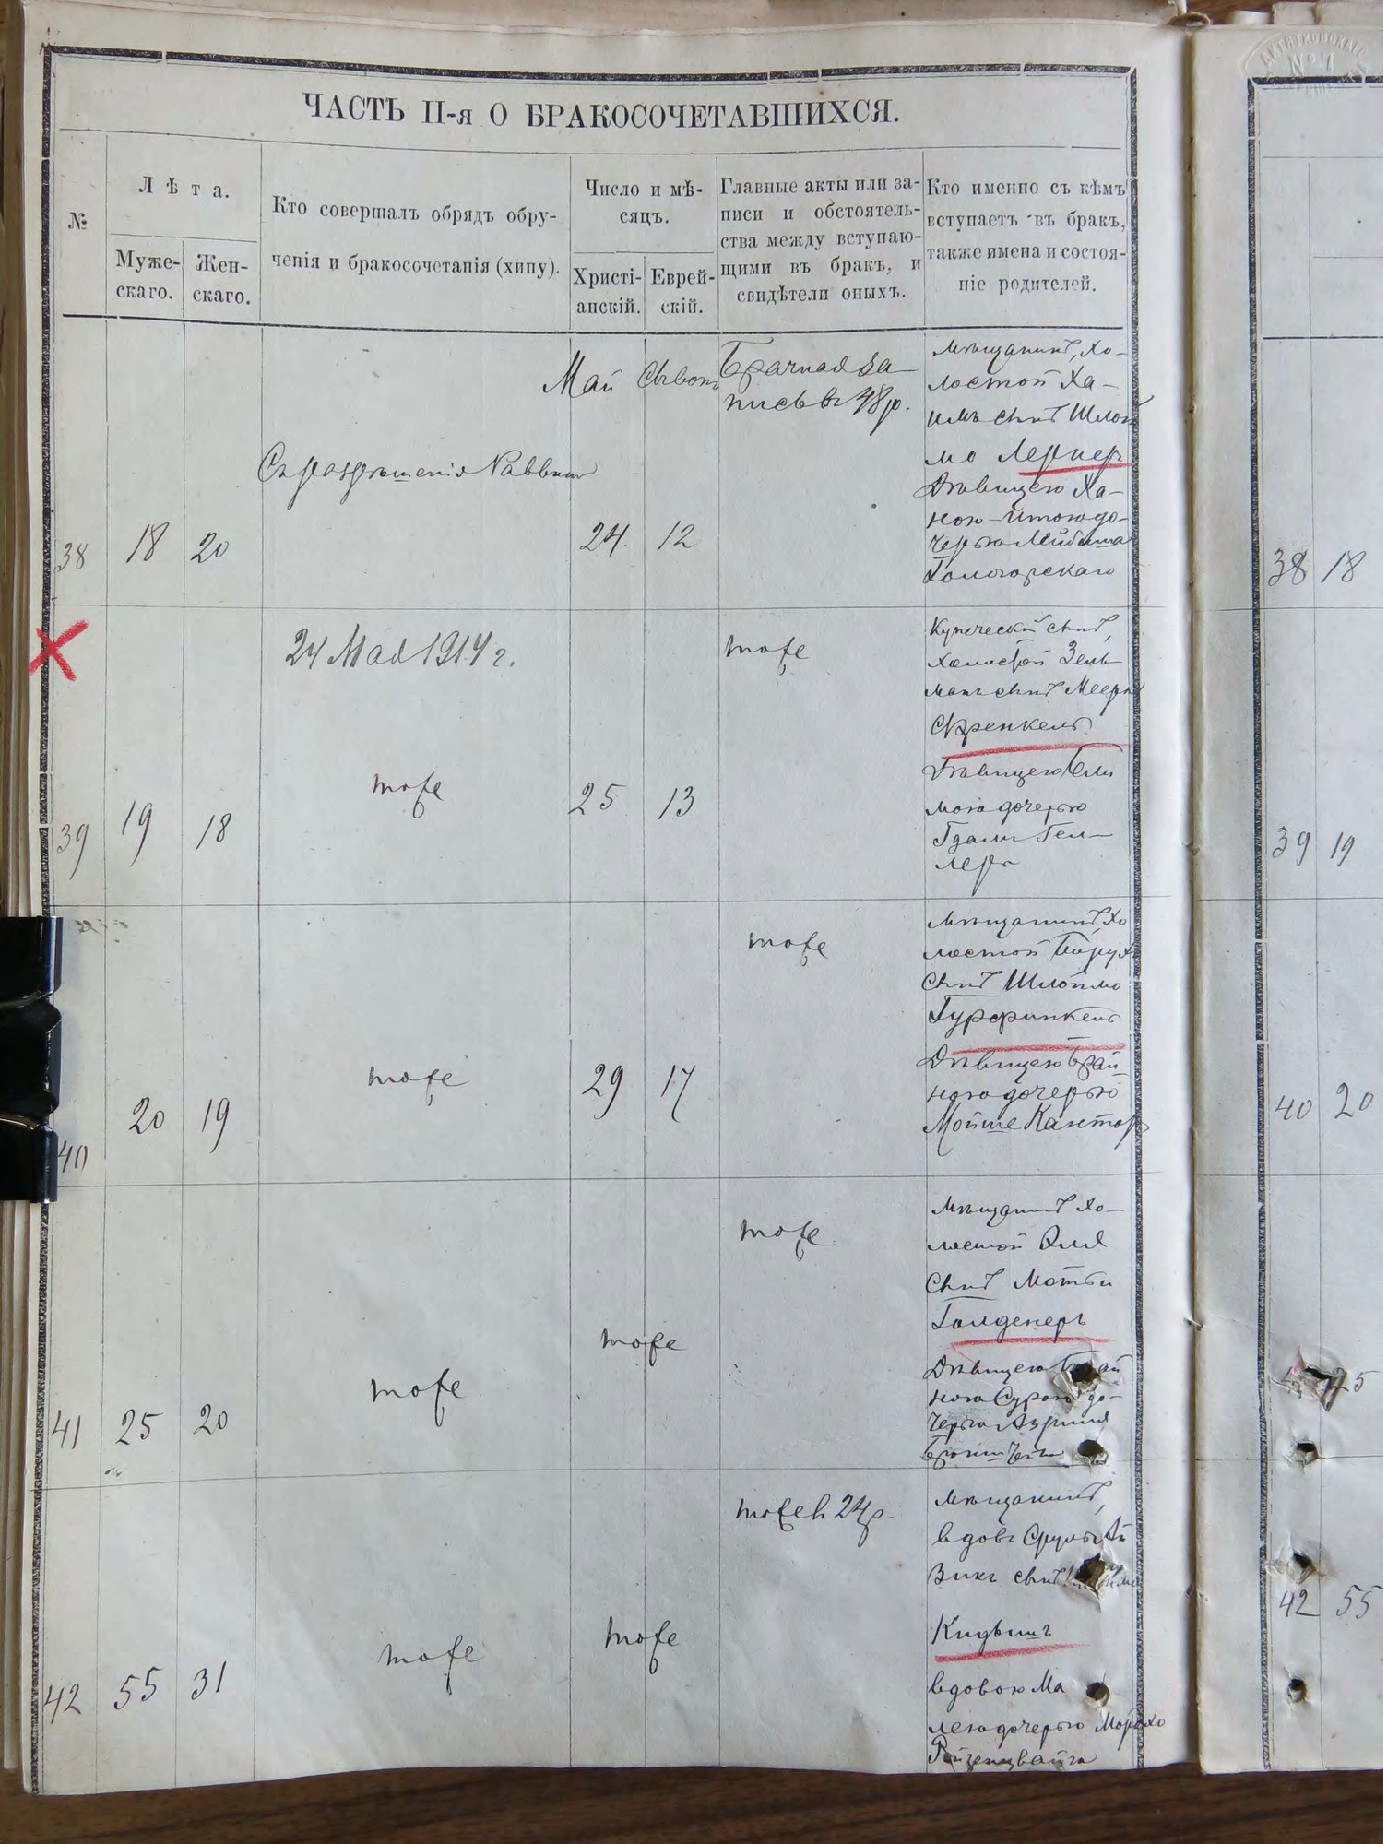 ЧАСТЬ II-я О БРАКОСОЧЕТАВШИХСЯ.
№
Лѣта.
Муже-
скаго.
Жен-
скаго.
Кто совершалъ обрядъ обру-
ченія и бракосочетанія (хипу).
Число и мѣ-
сяцъ.
Христі-
анскій.
Еврей-
скій.
Главные акты или за-
писи и обстоятель-
ства между вступаю-
щими въ бракъ, и
свидѣтели оныхъ.
Кто именно съ кѣмъ
вступаетъ въ бракъ,
также имена и состоя-
ніе родителей.
38 18 20
Съ разрѣшенія Раввина
Май Сивонъ
24 12
Брачная за-
пись въ 48 р.
Мѣщанинъ, хо-
лостой Ха-
имъ сынъ Шлой
мо Лернеръ
Дѣвицею Ха-
ною-Итою до-
черью Лейбиша
Гологорскаго
39 19 18
24 Мая 1914 г.
тоже
25 13
тоже
Купеческій сынъ,
холостой Зель-
манъ сынъ Меера
Френкель
Дѣвицею
мою дочерью
Гдали Гел-
лера
40 20 19
тоже
29 17
тоже
Мѣщанинъ, хо
лостой Борухъ
сынъ Шлоймо
Гурфинкель
Дѣвицею Брай-
ною дочерью
Мойше Кантор
41 25 20
тоже
тоже
тоже
Мѣщанинъ хо-
лостой Эля
сынъ Мотьи
Голденеръ
Дѣвицею
ною Сурою до-
черью Азриля
42 55 31
тоже
тоже
тоже въ 24 р.
Мѣщанинъ,
вдовъ Сруль
Викъ сынъ
Кидышъ
вдовою Ма
лею дочерью Мордхо
Ройзенцвайга
№ 1
38 18
39 19
40 20
42 55